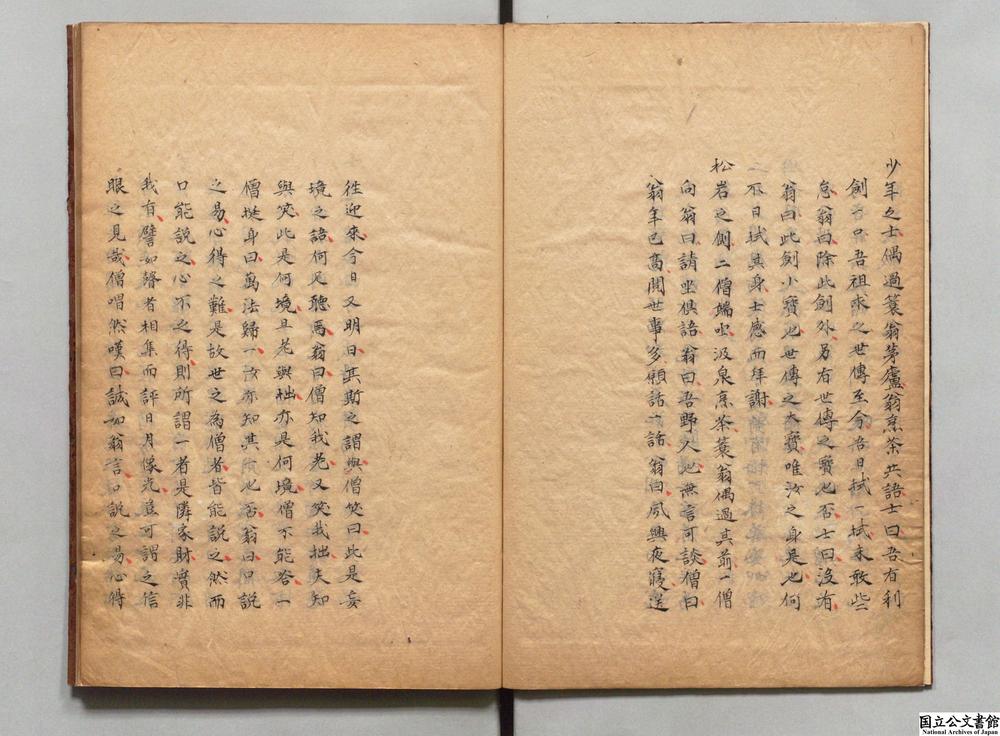 少年之士偶過蓑翁茅廬翁烹茶共語士曰吾有利
劍一口吾祖求之世傳至今吾日拭一拭未敢些
怠翁曰除此劍外另有世傳之寶也否士曰沒有
翁曰此劍小寶也世傳之大寶唯汝之身是也何
不日拭其身士感而拜謝
松岩之側二僧端坐汲泉烹茶蓑翁偶過其前一僧
向翁曰請坐俱語翁曰吾野人也無言可談僧曰
翁年已高閱世事多願話一話翁曰夙興夜寢送
徃迎來今日又明日其斯之謂與僧笑曰此是妄
境之語何足聽焉翁曰僧知我老又笑我拙夫知
與笑此是何境且老與拙亦是何境僧不能答一
僧挺身曰萬法歸一汝亦知其所也否翁曰口說
之易心得之難是故世之為僧者皆能說之然而
口能說之心不之得則所謂一者是隣家財寶非
我有譬如瞽者相集而評日月像光豈可謂之信
眼之見哉僧喟然嘆曰誠如翁言口說之易心得
国立公文書館
National Archives of Japan